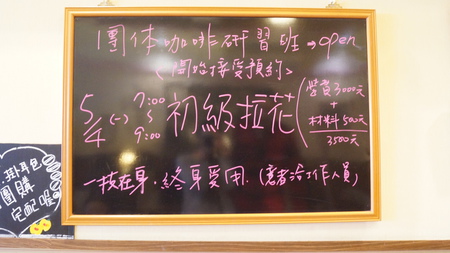 團体咖啡研習班→open
<開始接受預約>
5/4 (一) 7:00
5
9:00
初級拉花
(學費3000元
+
材料500元
3500元)
一技在身.終身受用.(意者洽工作人員)
掛耳包
團購
宅配喔